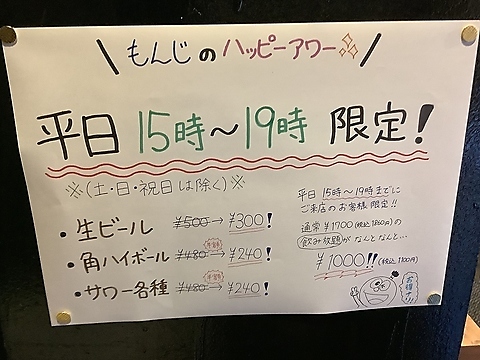 \ もんじのハッピーアワー /
平日 15時〜19時 限定!
※(土・日・祝日は除く)※
・生ビール ¥500→¥300!
・角ハイボール ¥480→半額¥240!
・サワー各種 ¥480→半額¥240!
平日 15時〜19時までに
ご来店のお客様限定!!
通常 ¥1700(税込1870円)の
飲み放題がなんとなんと…
¥1000!!(税込1100円)
お得ナリ